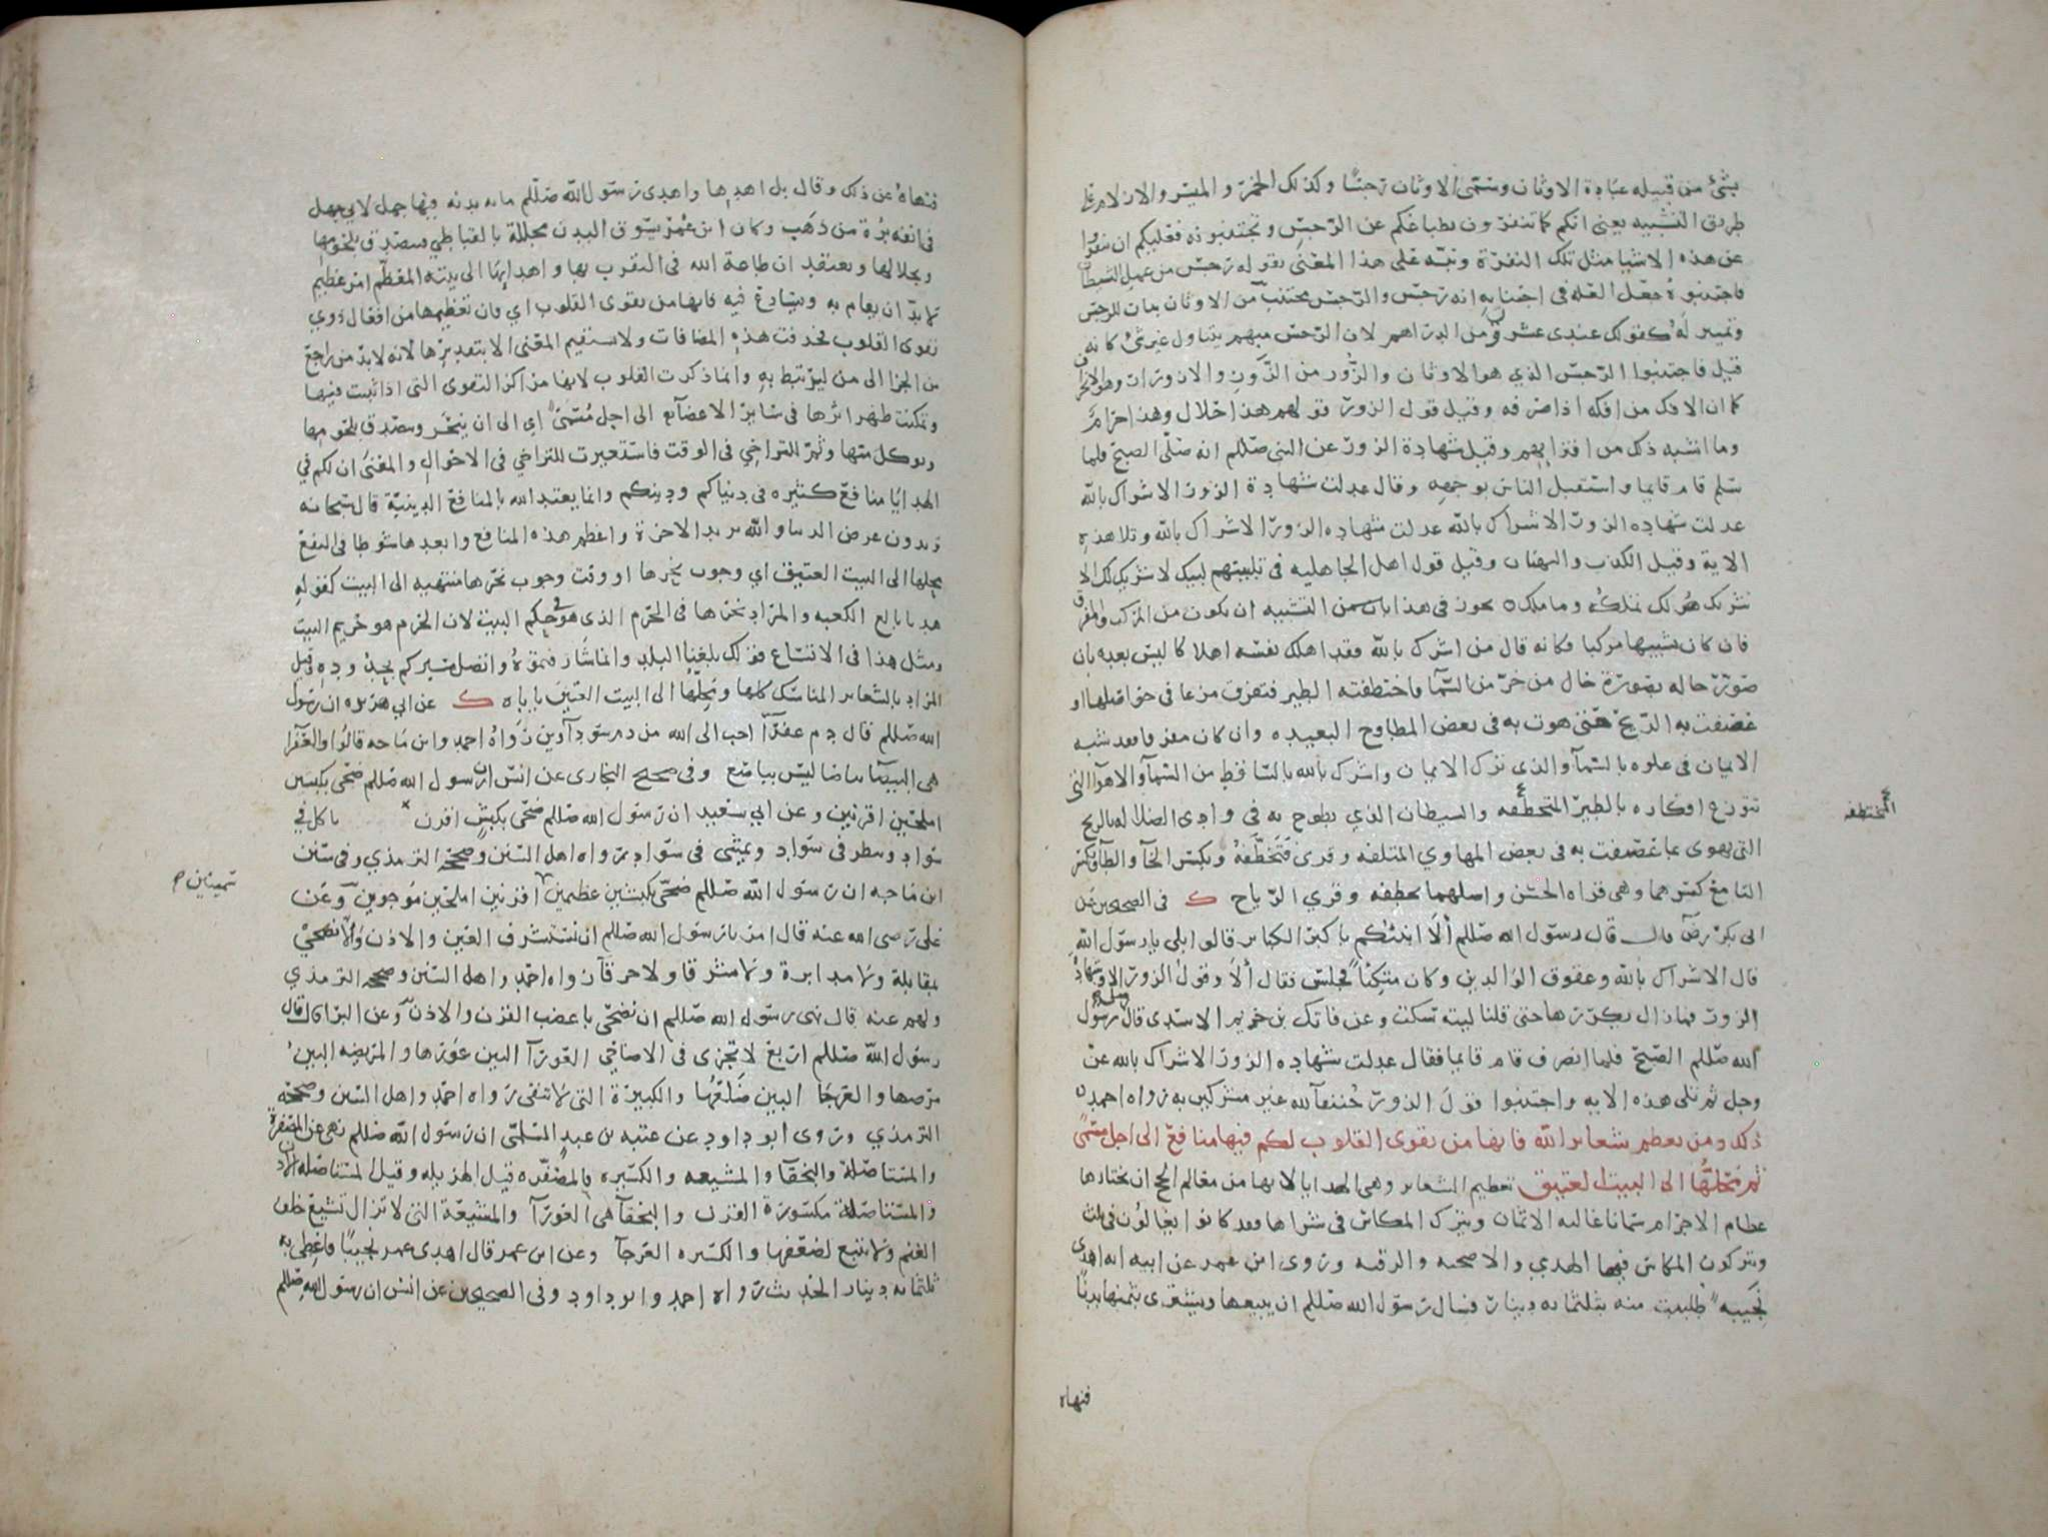 بشئ من قبيله عبادة الاوثان وسمى الاوثان رجسًا وكذلك الخمر والميسر والازلام على
طريق التشبيه يعني انكم كما تنفرون بطباعكم عن الرجس وتجتنبونه فعليكم ان تنفروا
عن هذه الاشيا مثل تلك النفرة ونبه على هذا المعنى بقوله رجس من عمل الشيطان
فاجتنبوه جعل العله في اجتنابه انه رجس والرجس مجتنب من الاوثان بيان للرجس
وتمييز له كقولك عندي عشرون من الدراهم لان الرجس مبهم يتناول غير شئ كانه
قيل فاجتنبوا الرجس الذي هو الاوثان والزور من الزور والازورار وهو الانحراف
كما ان الافك من افكه اذا صرفه وقيل قول الزور قولهم هذا حلال وهذا حرام
وما اشبه ذلك من افترايهم وقيل شهادة الزور عن النبي صللم انه صلى الصبح فلما
سلم قام قايما واستقبل الناس بوجهه وقال عدلت شهادة الزور الاشراك بالله
عدلت شهاده الزور الاشراك بالله عدلت شهاده الزور الاشراك بالله وتلا هذه
الاية وقيل الكذب والبهتان وقيل قول اهل الجاهليه في تلبيتهم لبيك لا شريك لك الا
شريك هو لك تملكه وما ملك ه يجوز في هذا بان من التشبيه ان يكون من المركب والمفرق
فان كان تشبيها مركبا فكانه قال من اشرك بالله فقد اهلك نفسه اهلاكا ليس بعده بان
صور حاله بصورة حال من خر من السما فاختطفته الطير فتفرق مزعا في حواصلها او
عصفت به الريح حتى هوت به في بعض المطاوح البعيده وان كان مفرقا فقد شبه
الايمان في علوه بالسمآ والذي ترك الايمان واشرك بالله بالساقط من السمآ والاهوآ التي
تتوزع افكاره بالطير المتخطفه والشيطان الذي يطوح به في وادي الضلاله بالريح
المختطفه
التي تهوى بما عصفت به في بعض المهاوي المتلفه وقرى فتخطفه وبكسر الخآ والطآ وبكسر
التا مع كسرهما وهي قراه الحسن واصلهما تختطفه وقري الرياح ك في الصحيحين عن
ابي بكره رضي قال قال رسول الله صللم ألا انبئكم باكبر الكباير قالوا بلى يا رسول الله
قال الاشراك بالله وعقوق الوالدين وكان متكئا فجلس فقال ألا وقول الزور الا وشهادة
الزور فما زال يكررها حتى قلنا ليته سكت وعن فاتك بن خريم الاسدي قال صلى رسول
الله صللم الصبح فلما انصرف قام قايما فقال عدلت شهاده الزور الاشراك بالله عز
وجل ثم تلى هذه الايه واجتنبوا قول الزور حنفآ لله غير مشركين به رواه احمد ه
ذلك ومن يعظم شعاير الله فانها من تقوى القلوب لكم فيها منافع الى اجل مسمى
ثم محلها الى البيت العتيق تعظيم الشعاير وهي الهدايا لانها من معالم الحج ان يختارها
عظام الاجرام سمانا غاليه الاثمان ويترك المكاس في شراها فقد كانوا يغالون في ثلث
ويتركون المكاس فيها الهدي والاضحيه والرقبه وروى ابن عمر عن ابيه انه اهدى
نجيبه طلبت منه بثلثمايه دينار فسال رسول الله صللم ان يبيعها ويشترى بثمنها بدنا
فنهاه
فنهاه عن ذلك وقال بل اهدها واهدى رسول الله صللم مايه بدنه فيها جمل لابي جهل
في انفه برة من ذهب وكان ابن عمر يسوق البدن مجللة بالقباطي فيتصدق بلحومها
وبجلالها ويعتقد ان طاعة الله في التقرب بها واهدايها الى بيته المعظم امر عظيم
لا بد ان يقام به ويتسارع فيه فانها من تقوى القلوب اي فان تعظيمها من افعال ذوي
تقوى القلوب فحذفت هذه المضافات ولا يستقيم المعنى الا بتقديرها لانه لا بد من راجع
من الجزا الى من ليرتبط به وانما ذكرت القلوب لانها مراكز التقوى التي اذا ثبتت فيها
وتمكنت ظهر اثرها في سائر الاعضآء الى اجل مسمى اي الى ان ينحر ويتصدق بلحومها
ويوكل منها وثم للتراخي في الوقت فاستعيرت للتراخي في الاحوال والمعنى ان لكم في
الهدايا منافع كثيره في دنياكم ودينكم وانما يعتد الله بالمنافع الدينيّة قال سبحانه
تريدون عرض الدنيا والله يريد الاخرة واعظم هذه المنافع وابعدها شوطا في النفع
محلها الى البيت العتيق اي وجوب نحرها او وقت وجوب نحرها منتهيه الى البيت كقوله
هديا بالغ الكعبه والمراد نحرها في الحرم الذي هو في حكم البيت لان الحرم هو حريم البيت
ومثل هذا في الاتساع قولك بلغنا البلد وانما شارفتموه واتصل مسيركم بحدوده وقيل
المراد بالشعاير المناسك كلها ومحلها الى البيت العتيق ياباه ك عن ابي هريره ان رسول
الله صللم قال دم عفرآ احب الى الله من دم سودآوين رواه احمد وابن ماجه قالوا والعفرا
هي البيضآ بياضا ليس بناصع وفي صحيح البخاري عن انس ان رسول الله صللم ضحى بكبشين
املحين اقرنين وعن ابي سعيد ان رسول الله صللم ضحى بكبش اقرن ياكل في
سواد وينظر في سواد ويمشي في سواد رواه اهل السنن وصححه الترمذي وفي سنن
ابن ماجه ان رسول الله صللم ضحى بكبشين عظيمين اقرنين املحين موجوين وعن
سمينين م
علي رضي الله عنه قال امرنا رسول الله صللم ان نستشرف العين والاذن والا نضحي
بمقابلة ولا مدابرة ولا شرقا ولا خرقآ رواه احمد واهل السنن وصححه الترمذي
ولهم عنه قال نهى رسول الله صللم ان نضحي باعضب القرن والاذن وعن البرا قال قال
رسول الله صللم اربع لا تجزى في الاضاحي العورآ البين عورها والمريضه البين
مرضها والعرجا البين ضلعها والكبيرة التي لا تنقى رواه احمد واهل السنن وصححه
الترمذي وروى ابو داود عن عتبه بن عبد السلمي ان رسول الله صللم نهى عن المصفرة
والمستاصلة والبخقا والمشيعه والكسيره فالمصفره قيل الهزيله وقيل المستاصله الاذن
والمستاصلة مكسورة القرن والبخقآ هي العورآ والمشيعة التي لا تزال تشيع خلف
الغنم ولا تتبع لضعفها والكسيره العرجآ وعن ابن عمر قال اهدى عمر نجيبا فاعطي به
ثلثمايه دينار الحديث رواه احمد وابو داود وفي الصحيحين عن انس ان رسول الله صللم